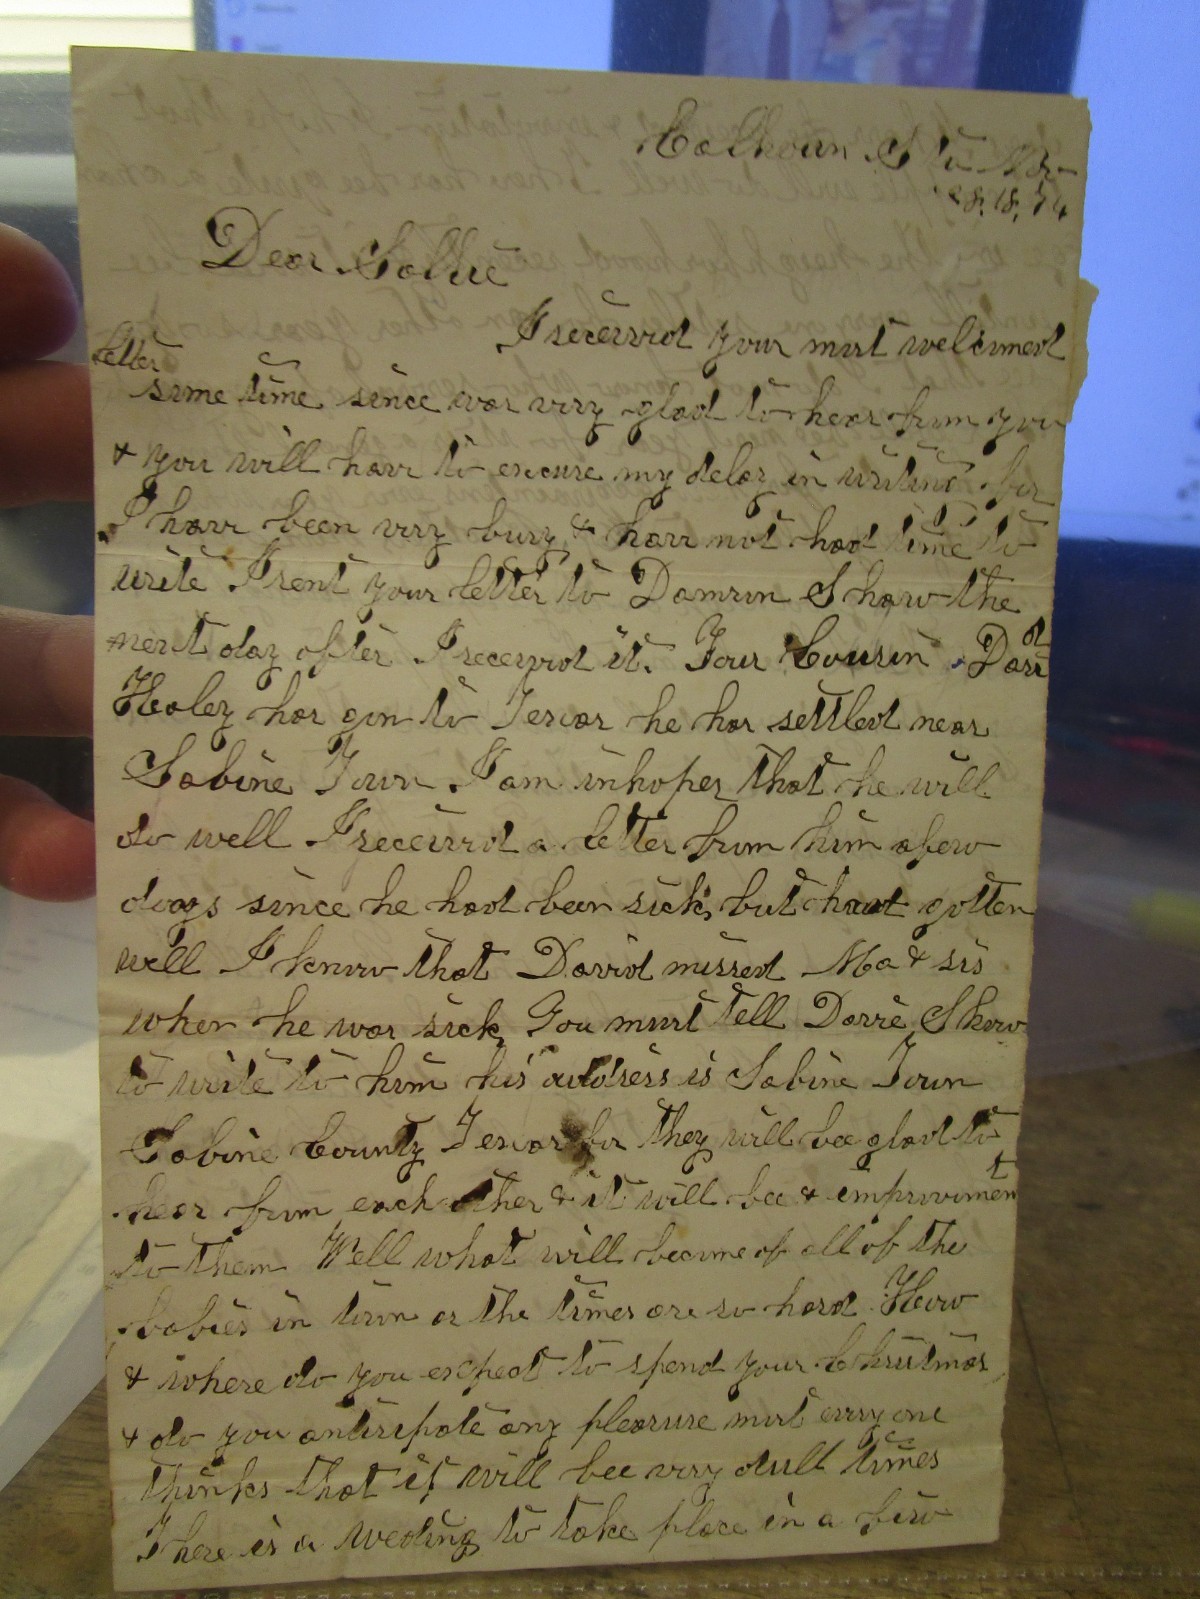 Calhoun
Dear Sallie
I received your most welcomed
letter
some time since was very glad to hear from you
& you will have to excuse my delay in writing for
I have been very busy & have not had time to
write I sent your letter to Damron Shaw the
next day after I received it. Your Cousin Dave
Haley has gon to Texas he has settled near
Sabine Town I am in hopes that he will
do well I received a letter from him a few
days since he had been sick, but had gotten
well I know that David missed Ma & sis
when he was sick You must tell Davie Shaw
to write to him his address is Sabine Town
Sabine County Texas for they will bee glad to
hear from each other & it will bee & improvement
to them Well what will become of all of the
babies in town as the times are so hard How
& where do you expect to spend your Christmas
& do you antisipate any pleasure most every one
thinks that it will bee very dull times
There is a weding to take place in a few